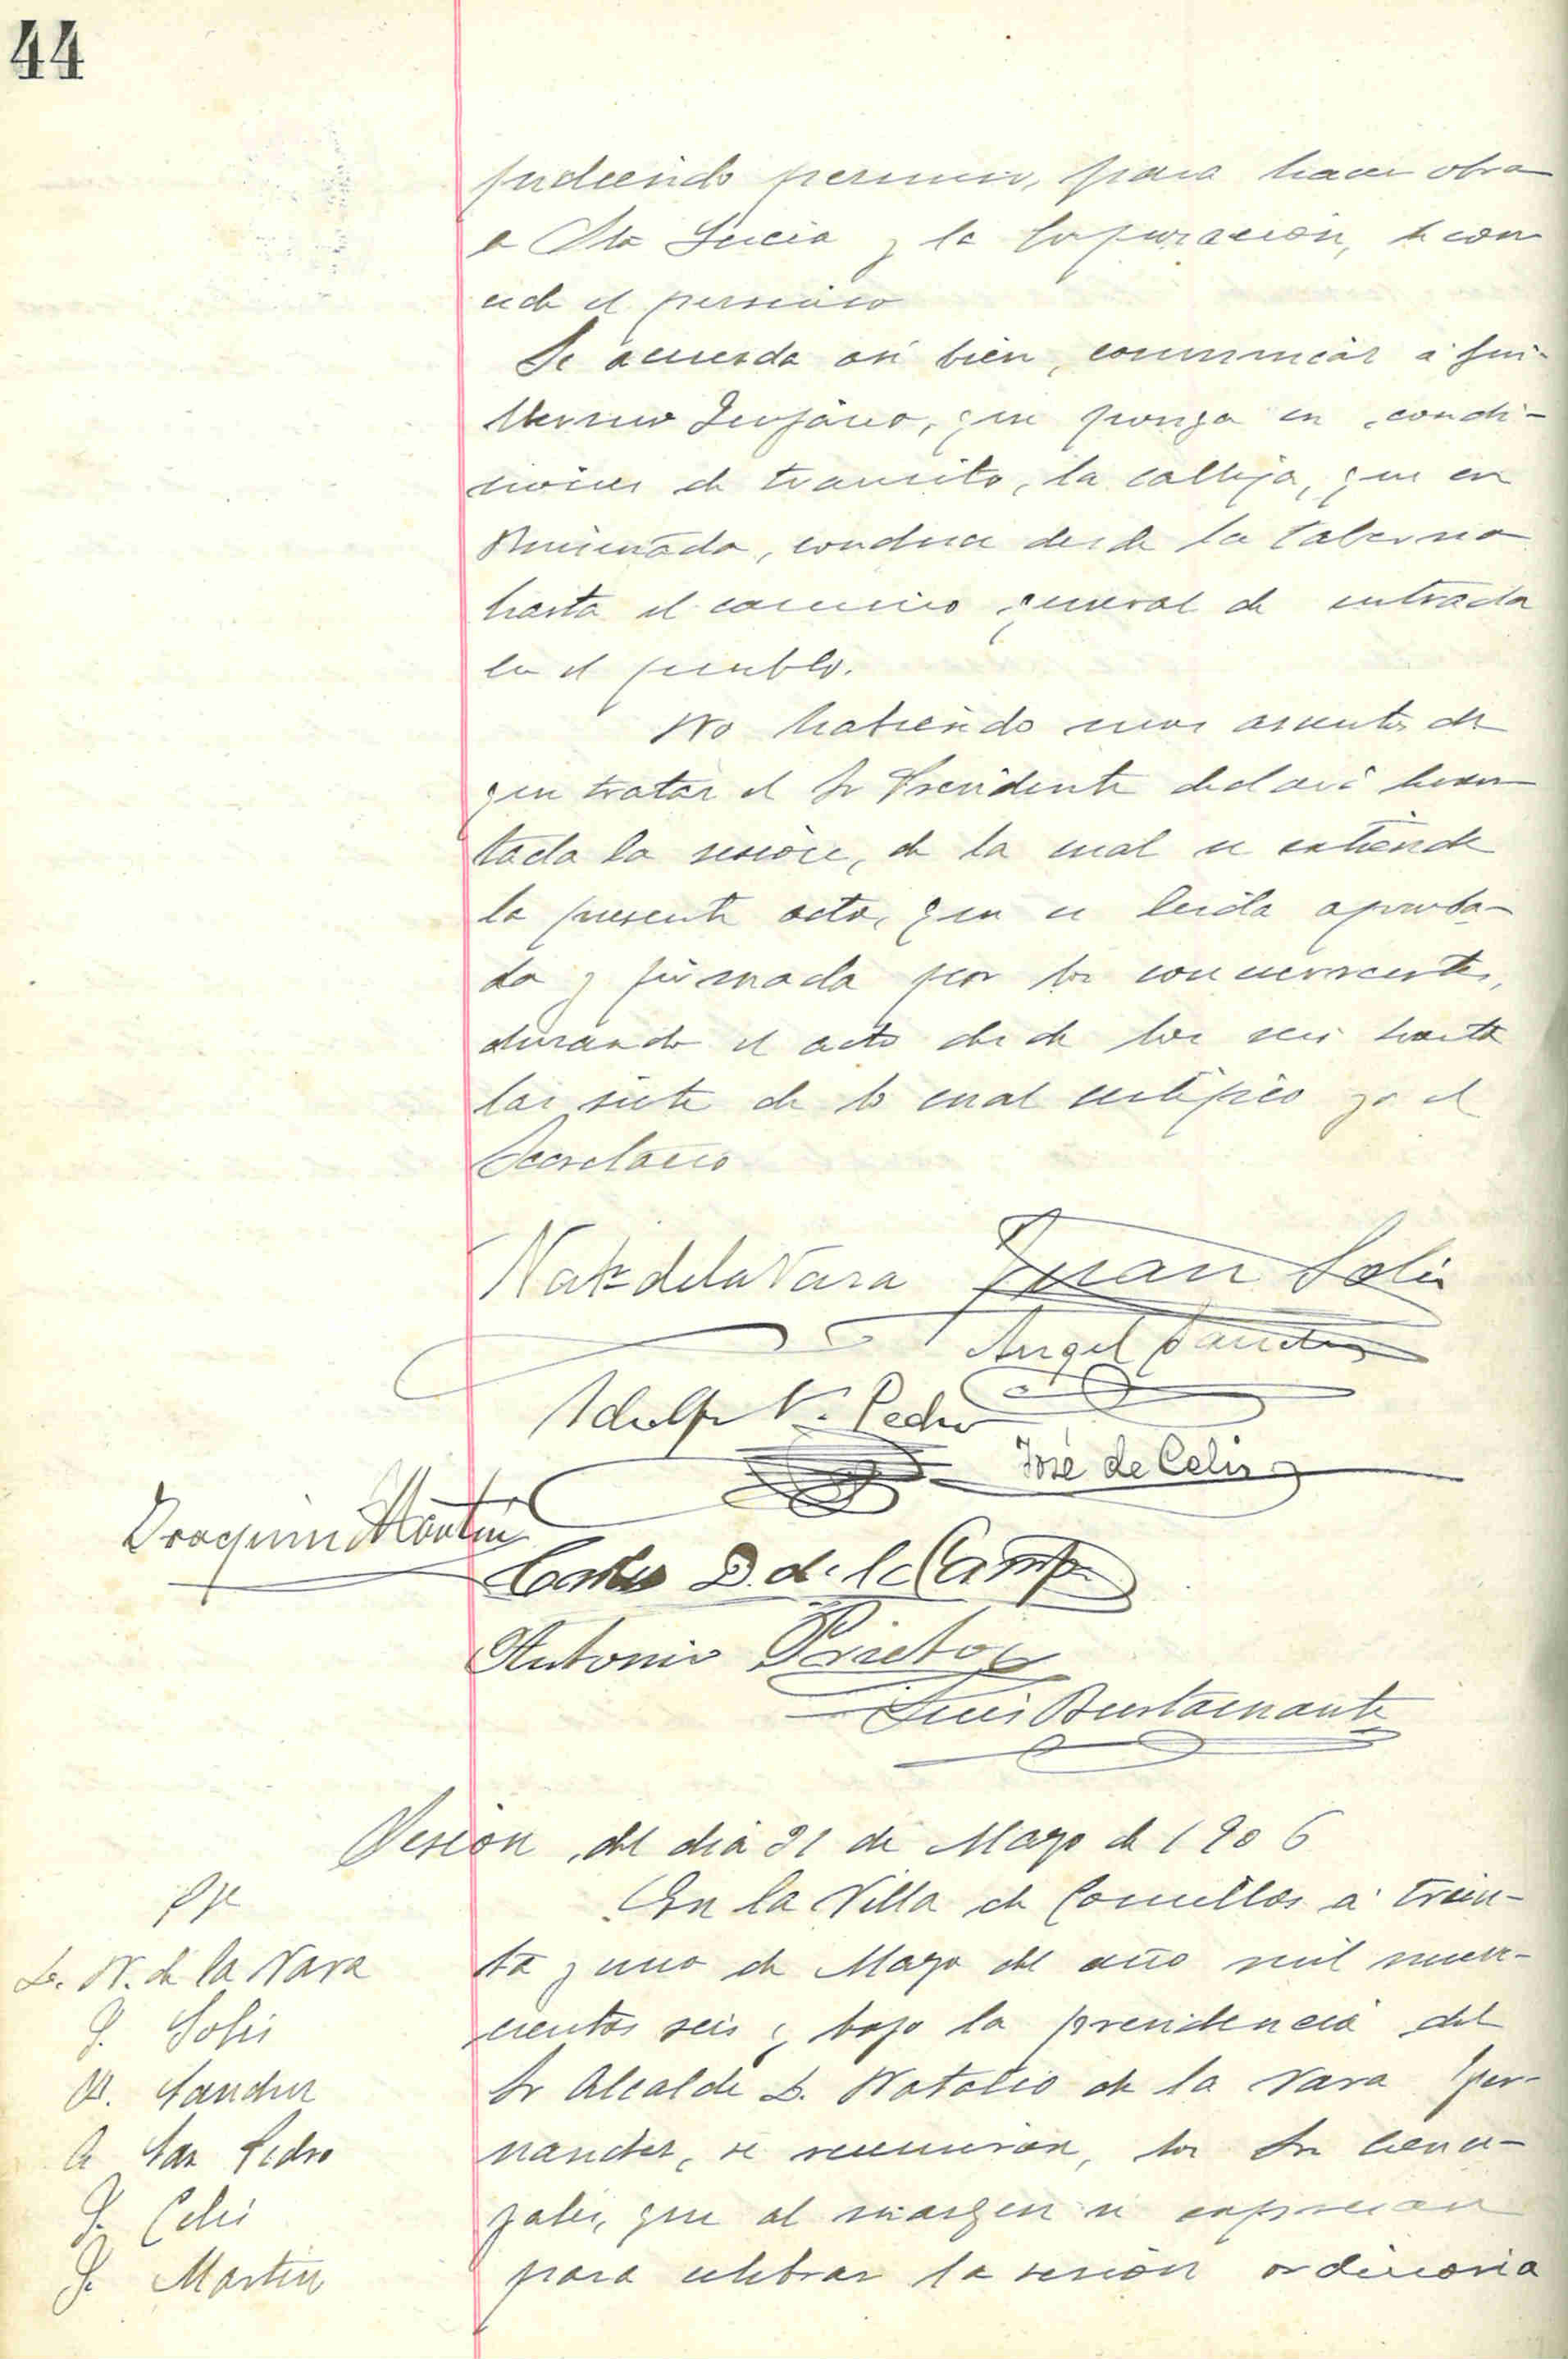 44
pidiendo permiso, para hacer obra
a Sta Lucia y la Coporación, le con
cede el permiso
Se acuerda asi bien, comunicar á Gui-
llermo, que ponga en condi-
ciones de transito, la calleja, que en
Ruiseñada, conduce desde la taberna
hasta el camino general de entrada
en el pueblo.
No habiendo mas asuntos de
que tratar el Sr Presidente declaró levan
tada la sesión, de la cual se extiende
la presente acta, que es leida aproba-
da y firmada por los concurrentes,
durando el acto desde las seis hasta
las siete de lo cual certifico yo el
Secretario
Nat. de la Vara Juan Solis
Angel Sanchez
Adolfo S. Pedro
José de Celis
Joaquin Martin
Carlos D. de la Campa
Antonio Prieto
Luis Bustamante
Sesion del dia 31 de Mayo de 1906
En la Villa de Comillas á trein-
D. N. de la Vara
ta y uno de Mayo del año mil nove-
J. Solis
cientos seis y bajo la presidencia del
A. Sanchez
Sr Alcalde D. Natalio de la Vara Fer-
A San Pedro
nandez, se reunieron, los Sres conce-
J. Celis
jales, que al margen se expresan
J. Martin
para celebrar la sesión ordinaria